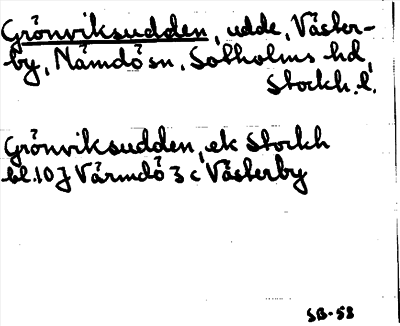 Grönviksudden, udde, Väster-
by, Nämdö sn, Sotholms hd,
Stockh. l.
Grönviksudden, ek Stockh
bl. 10 J Värmdö 3 c Västerby
SB-53